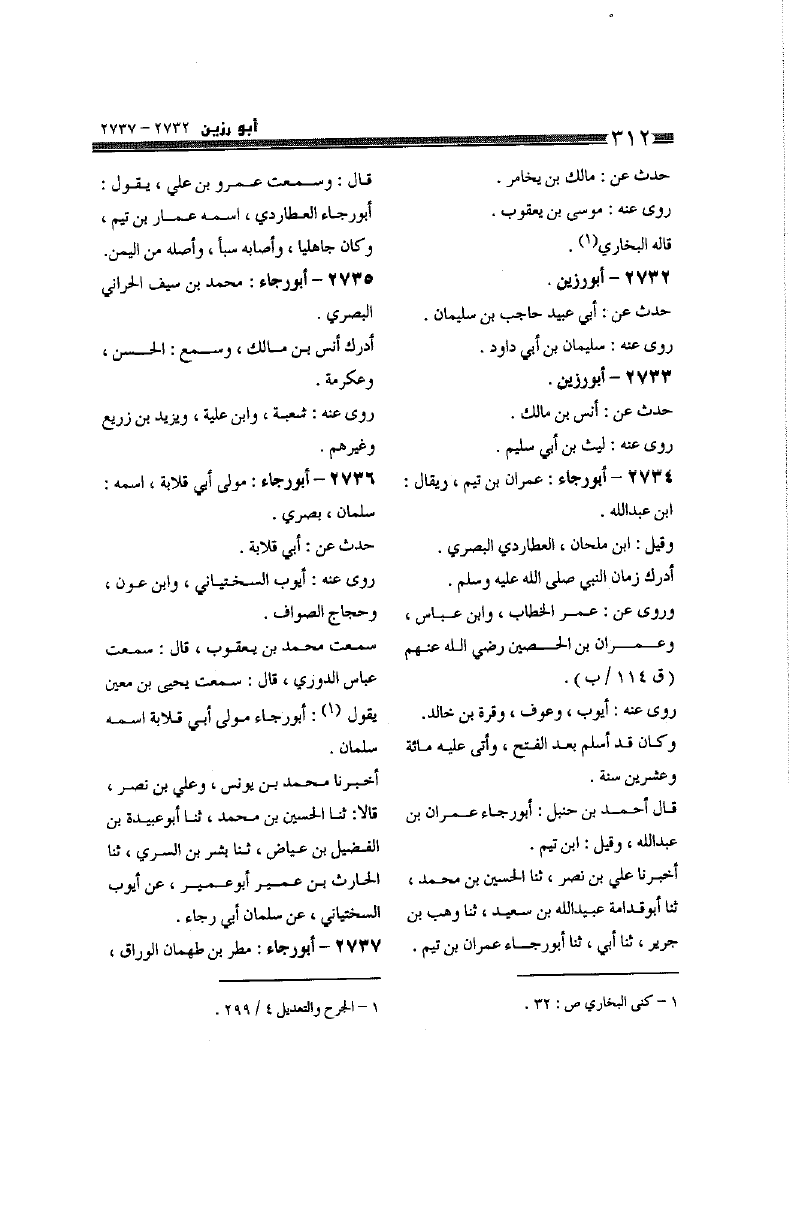 ٣١٢
أبو رزين ٢٧٣٢ – ٢٧٣٧
حدث عن : مالك بن يخامر .
روى عنه : موسى بن يعقوب .
قاله البخاري(١) .
٢٧٣٢ – أبورزين .
حدث عن : أبي عبيد حاجب بن سليمان .
روى عنه : سليمان بن أبي داود .
٢٧٣٣ – أبورزين .
حدث عن : أنس بن مالك .
روى عنه : ليث بن أبي سليم .
٢٧٣٤ – أبورجاء : عمران بن تيم ، ويقال :
ابن عبدالله .
وقيل : ابن ملحان ، العطاردي البصري .
أدرك زمان النبي صلى الله عليه وسلم .
وروى عن : عمر الخطاب ، وابن عباس ،
وعمران بن الحصين رضي الله عنهم
(ق ١١٤ / ب) .
روى عنه : أيوب ، وعوف ، وقرة بن خالد.
وكان قد أسلم بعد الفتح ، وأتى عليه مائة
وعشرين سنة .
قال أحمد بن حنبل : أبورجاء عمران بن
عبدالله ، وقيل : ابن تيم .
أخبرنا علي بن نصر ، ثنا الحسين بن محمد ،
ثنا أبوقدامة عبيدالله بن سعيد ، ثنا وهب بن
جرير ، ثنا أبي ، ثنا أبورجاء عمران بن تيم .
١ – كنى البخاري ص : ٣٢ .
قال : وسمعت عمرو بن علي ، يقول :
أبورجاء العطاردي ، اسمه عمار بن تيم ،
وكان جاهليا ، وأصابه سبأ ، وأصله من اليمن.
٢٧٣٥ – أبورجاء : محمد بن سيف الحراني
البصري .
أدرك أنس بن مالك ، وسمع : الحسن ،
وعكرمة .
روى عنه : شعبة ، وابن علية ، ويزيد بن زريع
وغيرهم .
٢٧٣٦ – أبورجاء : مولى أبي قلابة ، اسمه :
سلمان ، بصري .
حدث عن : أبي قلابة .
روى عنه : أيوب السختياني ، وابن عون ،
وحجاج الصواف .
سمعت محمد بن يعقوب ، قال : سمعت
عباس الدوري ، قال : سمعت يحيى بن معين
يقول (١) : أبورجاء مولى أبي قلابة اسمه
سلمان .
أخبرنا محمد بن يونس ، وعلي بن نصر ،
قالا: ثنا الحسين بن محمد ، ثنا أبوعبيدة بن
الفضيل بن عياض ، ثنا بشر بن السري ، ثنا
الحارث بن عمير أبوعمير ، عن أيوب
السختياني ، عن سلمان أبي رجاء .
٢٧٣٧ – أبورجاء : مطر بن طهمان الوراق ،
١ – الجرح والتعديل ٤ / ٢٩٩ .